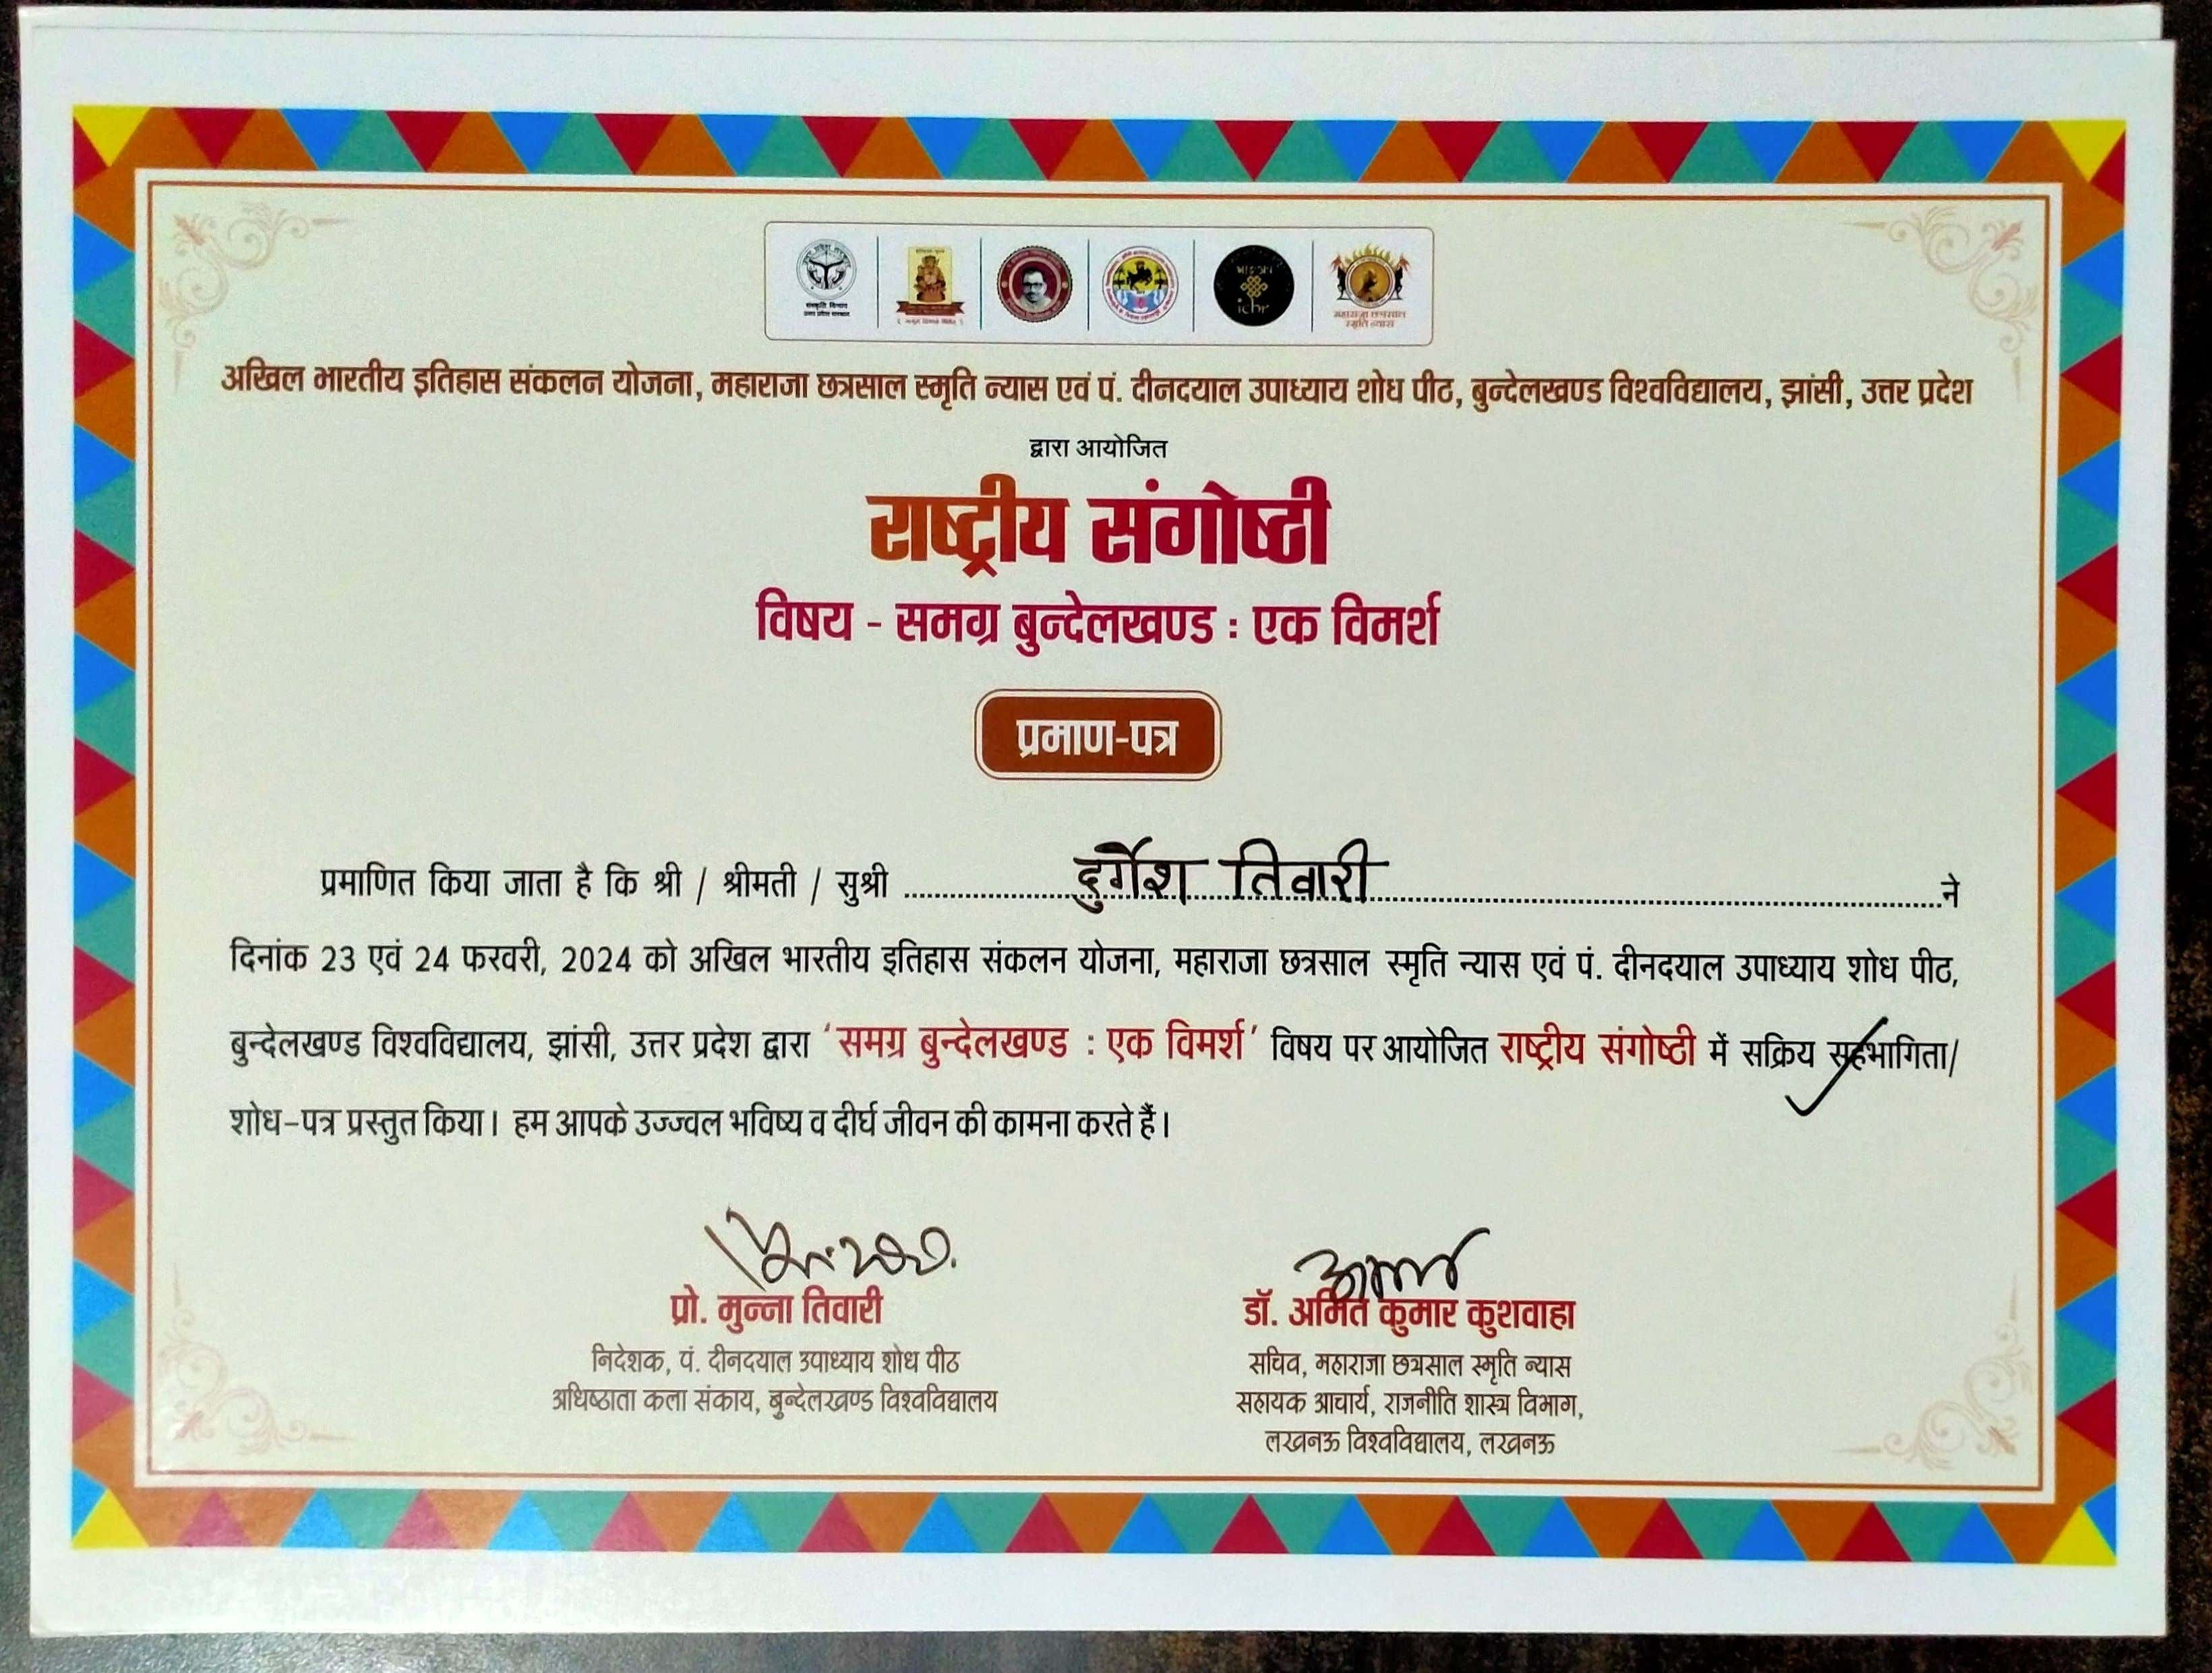 संस्कृति विभाग
ichr
महाराजा छत्रसाल
स्मृति न्यास
अखिल भारतीय इतिहास संकलन योजना, महाराजा छत्रसाल स्मृति न्यास एवं पं. दीनदयाल उपाध्याय शोध पीठ, बुन्देलखण्ड विश्वविद्यालय, झांसी, उत्तर प्रदेश
द्वारा आयोजित
राष्ट्रीय संगोष्ठी
विषय - समग्र बुन्देलखण्ड : एक विमर्श
प्रमाण-पत्र
प्रमाणित किया जाता है कि श्री / श्रीमती / सुश्री दुर्गेश तिवारी ने
दिनांक 23 एवं 24 फरवरी, 2024 को अखिल भारतीय इतिहास संकलन योजना, महाराजा छत्रसाल स्मृति न्यास एवं पं. दीनदयाल उपाध्याय शोध पीठ,
बुन्देलखण्ड विश्वविद्यालय, झांसी, उत्तर प्रदेश द्वारा ‘समग्र बुन्देलखण्ड : एक विमर्श’ विषय पर आयोजित राष्ट्रीय संगोष्ठी में सक्रिय सहभागिता/
शोध-पत्र प्रस्तुत किया। हम आपके उज्ज्वल भविष्य व दीर्घ जीवन की कामना करते हैं।
प्रो. मुन्ना तिवारी
निदेशक, पं. दीनदयाल उपाध्याय शोध पीठ
अधिष्ठाता कला संकाय, बुन्देलखण्ड विश्वविद्यालय
डॉ. अमित कुमार कुशवाहा
सचिव, महाराजा छत्रसाल स्मृति न्यास
सहायक आचार्य, राजनीति शास्त्र विभाग,
लखनऊ विश्वविद्यालय, लखनऊ